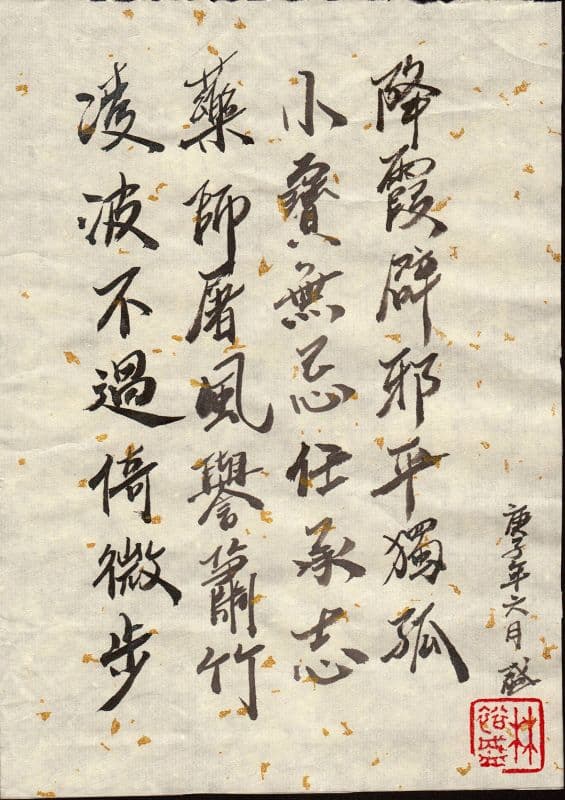 降霞辟邪平獨孤
小寶無忌任承志
藥師屠風譽蕭竹
凌波不過倚微步
庚子年六月 盛
林裕盛